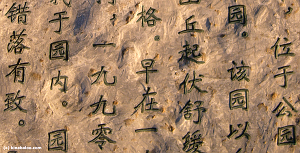 ，位于公园
园。该园以
丘起伏舒缓
格。早在一
，一九九零
于园内。园
错落有致。
(c) kinabaloo.com